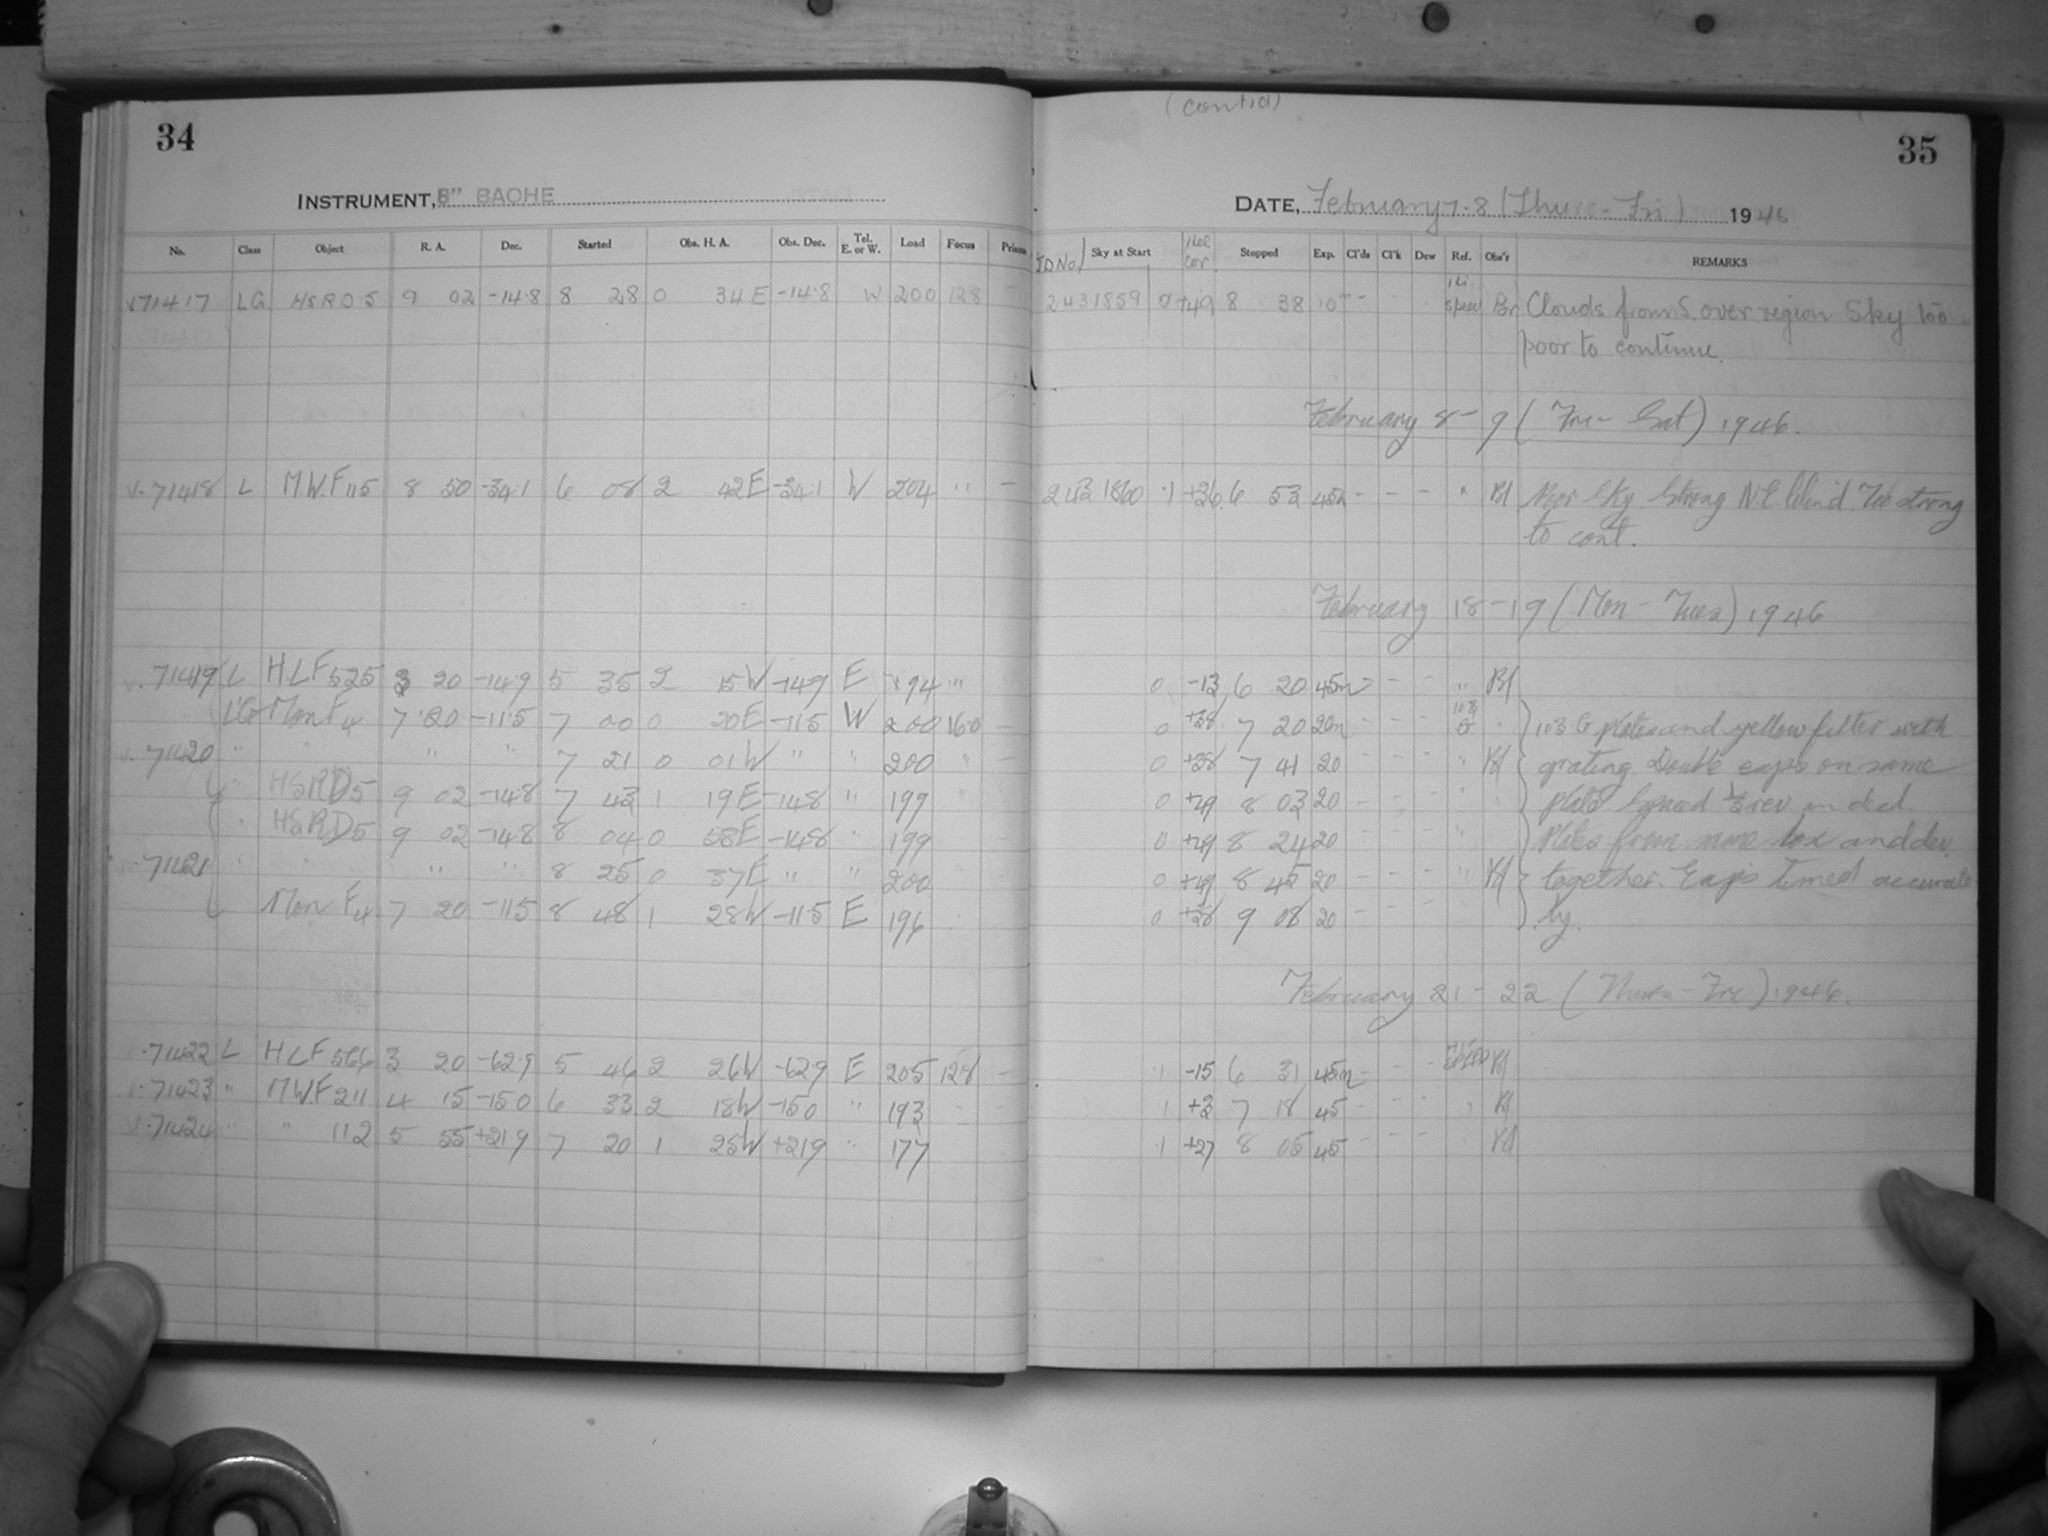 34
INSTRUMENT, 8" BACHE
No. Class Object R. A. Dec. Started Obs. H. A. Obs. Dec. Tel. E. or W. Load Focus Prism
71417 LG HSRD5 9 02 -14.8 8 28 0 34E -14.8 W 200 128
71418 L MWF115 8 50 -34.1 6 08 2 42E -34.1 W 204 " -
71419 L HLF525 3 20 -14.9 5 35 2 15W -14.9 E 194 "
LG Mon F4 7 20 -11.5 7 00 0 20E -11.5 W 200 16.0 -
71420 " " " 7 21 0 01W " " 200 "
" HSRD5 9 02 -14.8 7 43 1 19E -14.8 " 199
" HSRD5 9 02 -14.8 8 04 0 58E -14.8 " 199
71421 " " " 8 25 0 37E " " 200
Mon F4 7 20 -11.5 8 48 1 28W -11.5 E 196
71422 L HLF566 3 20 -62.9 5 46 2 26W -62.9 E 205 128 -
71423 " MWF211 4 15 -15.0 6 33 2 18W -15.0 " 193
71424 " " 112 5 55 +21.9 7 20 1 25W +21.9 " 177
(contd)
35
DATE, February 7-8 (Thurs-Fri) 1946
JD No. Sky at Start cor. Stopped Exp. Cl'ds Cl'k Dew Ref. Obs'r REMARKS
2431859 0 +49 8 38 10m - - Speed Br Clouds from S. over region Sky too
poor to continue.
February 8-9 (Fri-Sat) 1946.
2431860 .1 +36 6 53 45m - - - " Bl Poor Sky. Strong N.E. Wind. Too strong
to cont.
February 18-19 (Mon-Tues) 1946
0 -13 6 20 45m - - " Bl
0 +38 7 20 20m - - - 103 G 103 G plates and yellow filter with
0 +38 7 41 20 - - - " Bl grating Double exps on same
0 +49 8 03 20 - - - " plate Spaced ½ rev in decl
0 +49 8 24 20 - - - " plates from same box and dev.
0 +49 8 45 20 - - - " Bl together. Exps timed accurate
0 +38 9 08 20 - - - ly.
February 21-22 (Thurs-Fri) 1946.
.1 -15 6 31 45m - - Bl
.1 +3 7 18 45 - - - Bl
.1 +27 8 05 45 - - - Bl